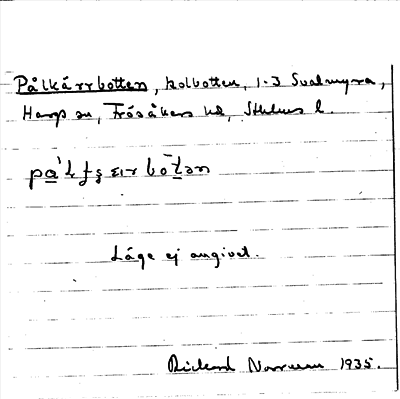 Pålkärrbotten, kolbotten, 1-3 Svalmyra,
Harg sn, Frösåkers hd, Sthlms l.
Läge ej angivet.
Rickard Norrman 1935.